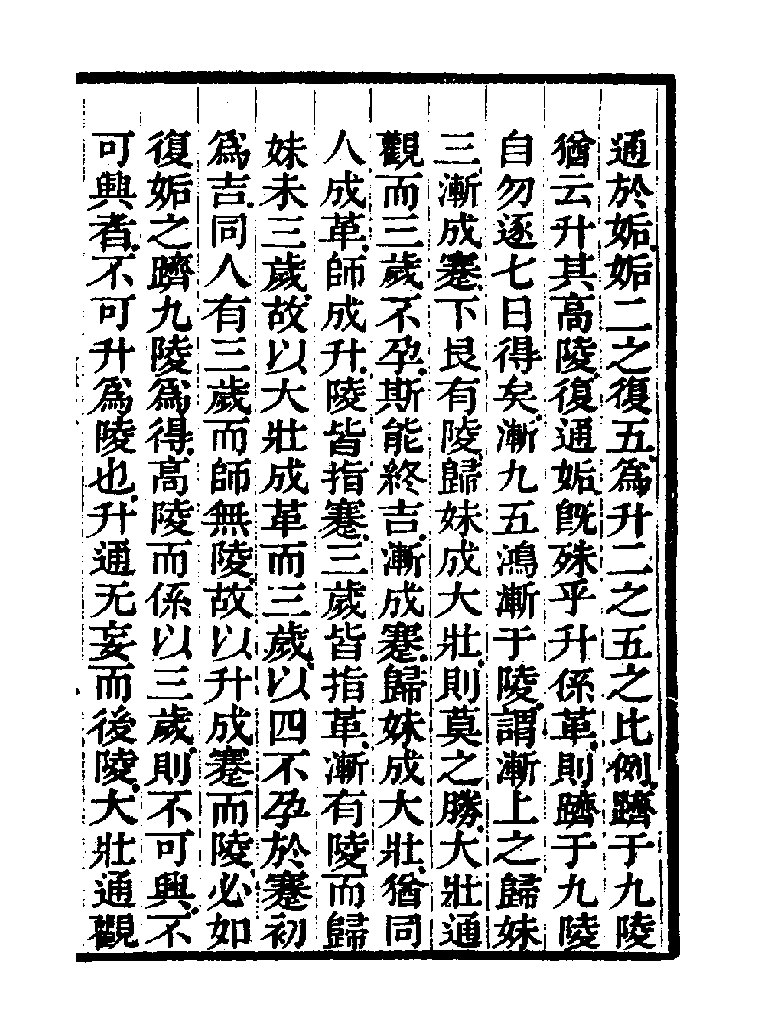 通於姤姤二之復五爲升二之五之比例躋于九陵
猶云升其高陵復通姤旣殊乎升係革則躋于九陵
自勿逐七日得矣漸九五鴻漸于陵謂漸上之歸妹
三漸成蹇下艮有陵歸妹成大壯則莫之勝大壯通
觀而三歲不孕斯能終吉漸成蹇歸妹成大壯猶同
人成革師成升陵皆指蹇三歲皆指革漸有陵而歸
妹未三歲故以大壯成革而三歲以四不孕於蹇初
爲吉同人有三歲而師無陵故以升成蹇而陵必如
復姤之躋九陵爲得高陵而係以三歲則不可興不
可興者不可升爲陵也升通无妄而後陵大壯通觀